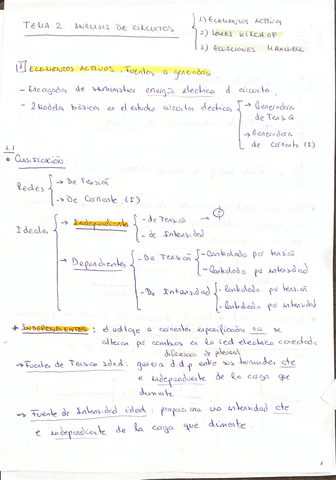 TEMA 2. ANALISIS DE CIRCUITOS
1) ELEMENTOS ACTIVOS
2) LEYES KIRCHOF
3) ECUACIONES MAXWELL
1 ELEMENTOS ACTIVOS. Fuentes o generadores
- Encargados de suministrar energía electrica al circuito
- 2 modelos básicos en el estudio circuitos electricos
→ Generadores de Tensión
→ Generadores de Corriente (I)
1.1
• CLASIFICACIÓN
Reales
→ De Tensión
→ De Corriente (I)
Ideales
→ Independientes
- de Tensión
- de Intensidad
→ Dependientes
- De Tensión
- Controlado por tensión
- Controlado por intensidad
- De Intensidad
- Controlado por tensión
- Controlado por intensidad
* INDEPENDIENTES: el voltaje o corrientes especificados no se
alteran por cambios en la red electrica conectada
diferencia de potencial
→ Fuentes de Tension Ideal: genera d.d.p entre sus terminales cte
e independiente de la carga que
alimente
→ Fuente de Intensidad ideal: proporciona una intensidad cte
e independiente de la carga que alimente